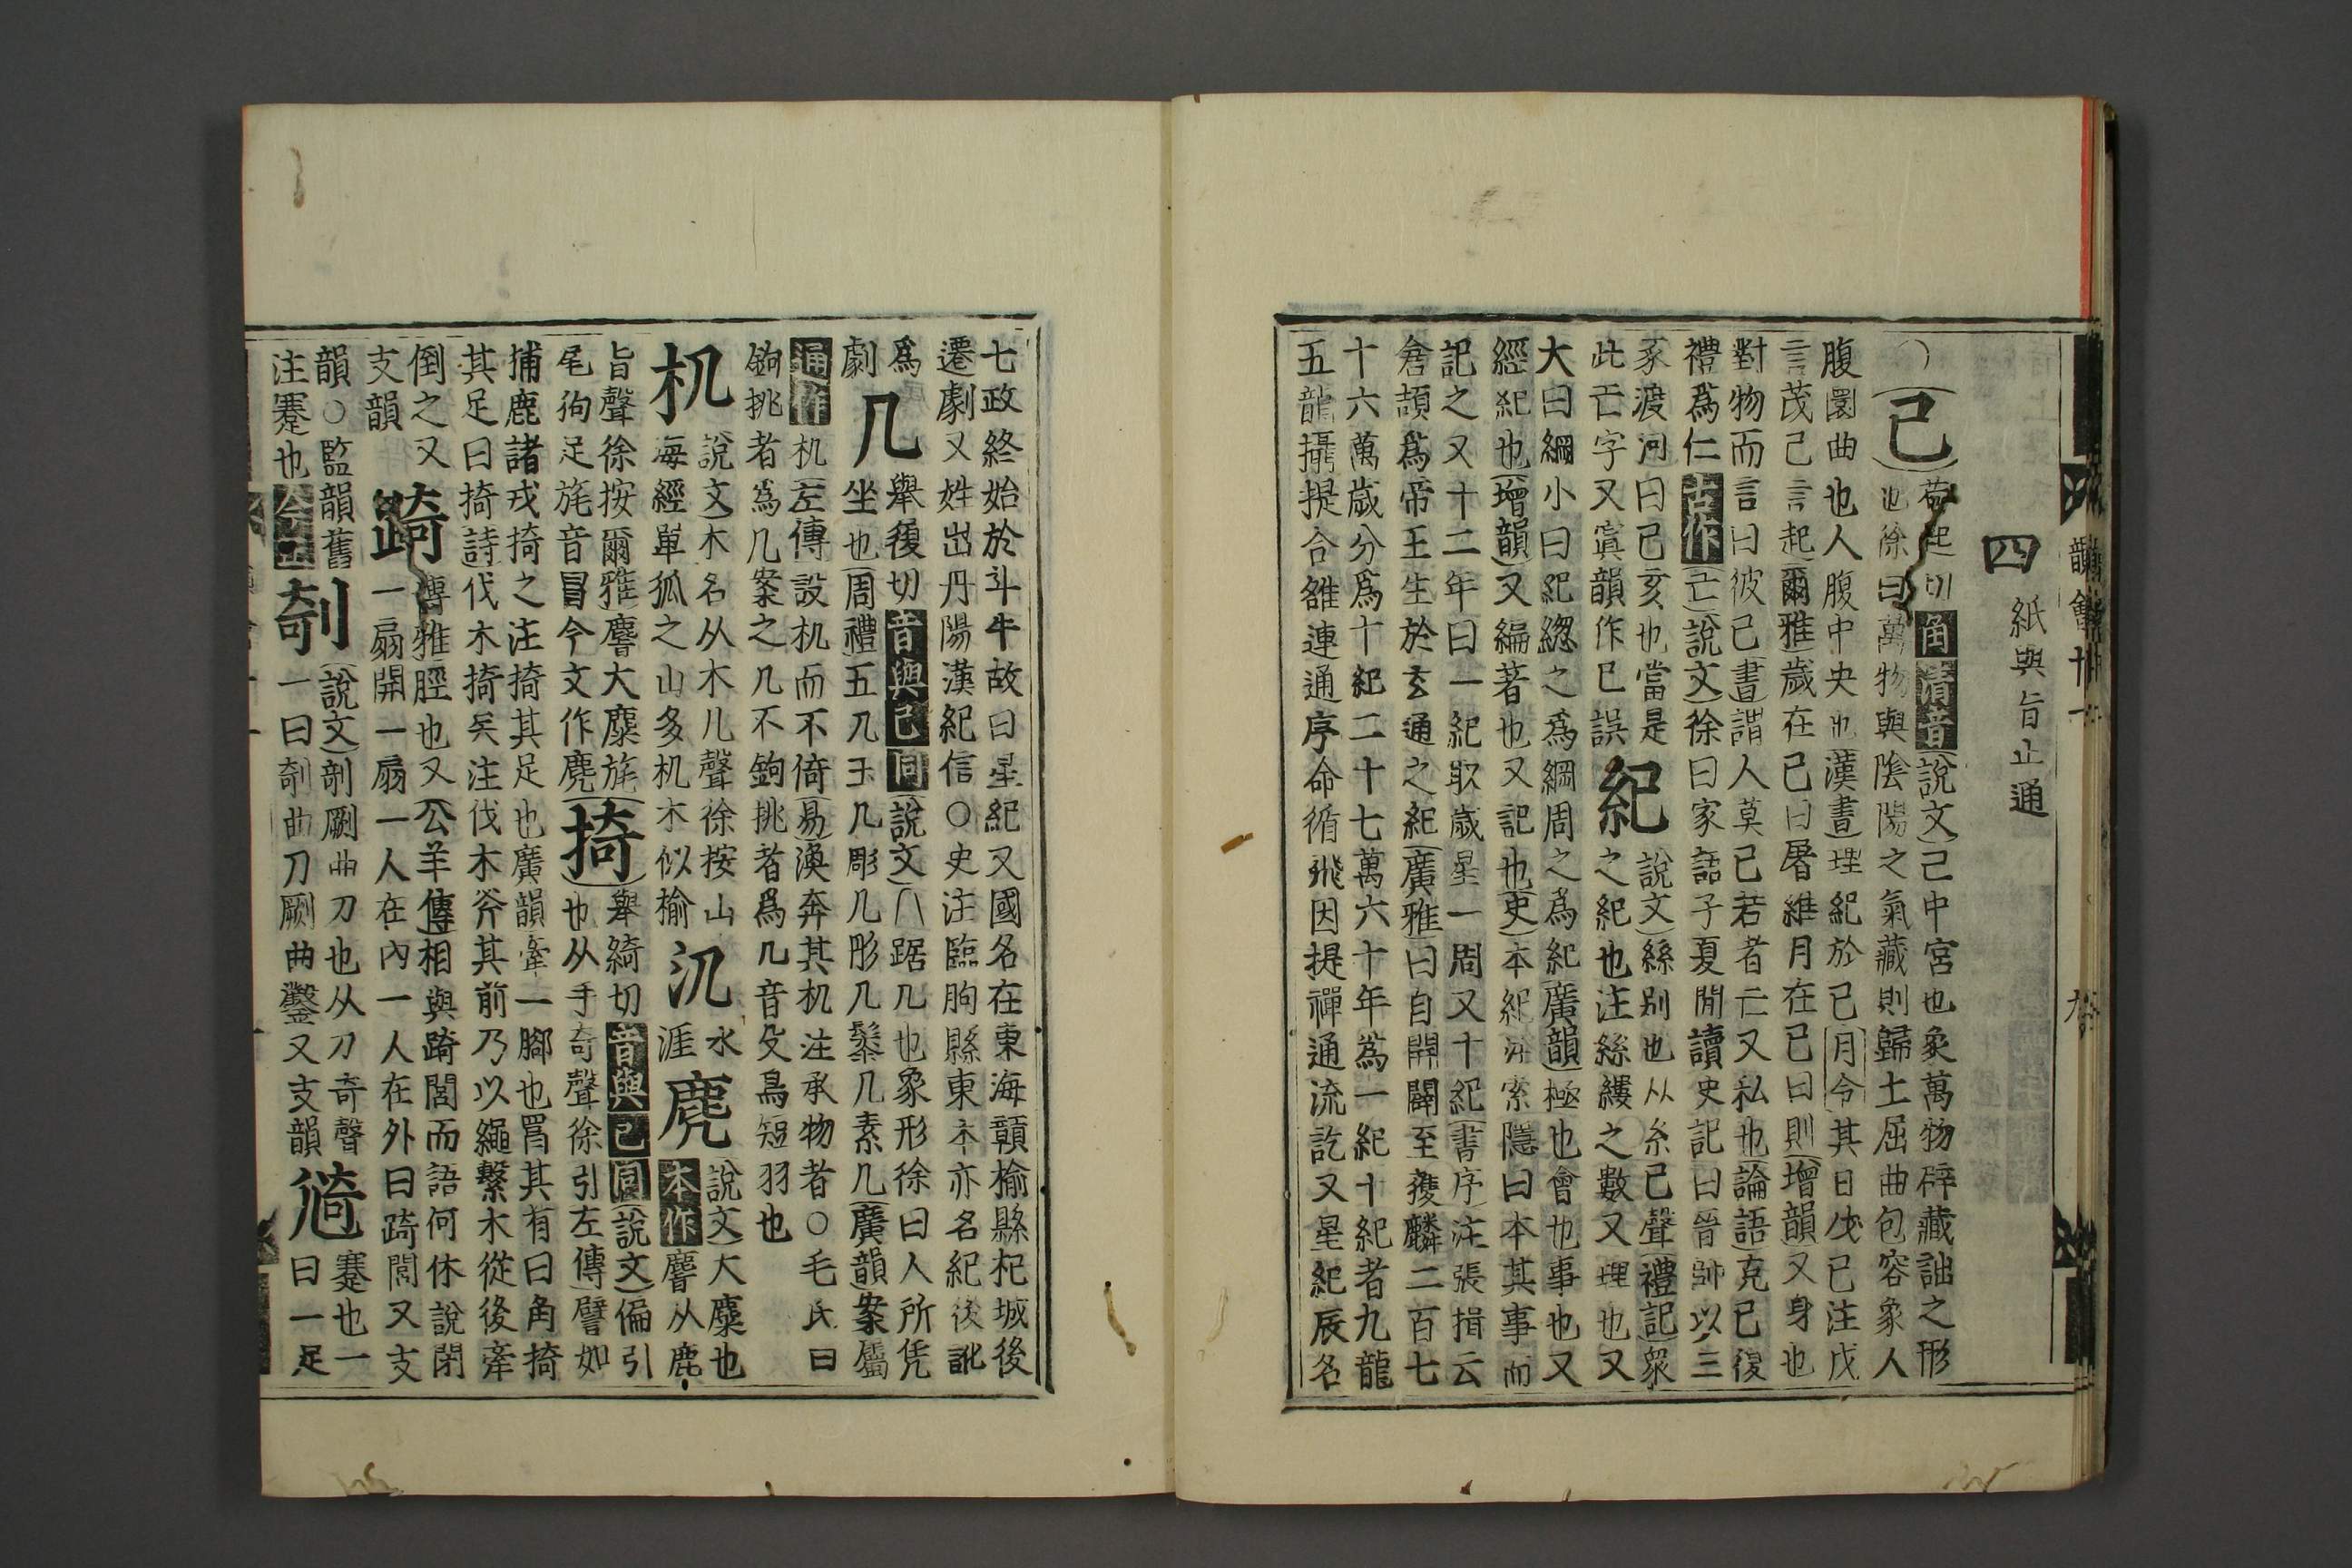 韻會卷十一
四 紙與旨止通
○己苟起切角清音說文己中宮也象萬物辟藏詘之形
也徐曰萬物與陰陽之氣藏則歸土屈曲包容象人
腹圜曲也人腹中央也漢書理紀於己月令其日戊己注戊
言茂己言起爾雅歲在己曰屠維月在己曰則增韻又身也
對物而言曰彼己書謂人莫己若者亡又私也論語克己復
禮爲仁古作亡說文徐曰家語子夏聞讀史記曰晉師以三
豕渡河曰己亥也當是
此亡字又寘韻作巳誤
紀說文絲别也从糸己聲禮記衆
之紀也注絲縷之數又理也又
大曰綱小曰紀緫之爲綱周之爲紀廣韻極也會也事也又
經紀也增韻又編著也又記也史本紀注索隱曰本其事而
記之又十二年曰一紀取歲星一周又十紀書序注張揖云
倉頡爲帝王生於玄通之紀廣雅曰自開闢至獲麟二百七
十六萬歲分爲十紀二十七萬六十年爲一紀十紀者九龍
五龍攝提合雒連通序命循飛因提禪通流訖又星紀辰名
七政終始於斗牛故曰星紀又國名在東海贛榆縣杞城後
遷劇又姓出丹陽漢紀信○史注臨朐縣東本亦名紀後訛
爲
劇
几舉履切音與己同說文几踞几也象形徐曰人所凭
坐也周禮五几玉几彫几彤几髹几素几廣韻案屬
通作机左傳設机而不倚易渙奔其机注承物者○毛氏曰
鉤挑者爲几案之几不鉤挑者爲几音殳鳥短羽也
机說文木名从木几聲徐按山
海經單狐之山多机木似榆
氿水
涯
麂說文大麋也
本作麐从鹿
旨聲徐按爾雅麐大麋旄
尾狗足旄音冒今文作麂
掎舉綺切音與己同說文偏引
也从手奇聲徐引左傳譬如
捕鹿諸戎掎之注掎其足也廣韻牽一腳也罥其有曰角掎
其足曰掎詩伐木掎矣注伐木斧其前乃以繩繫木從後牽
倒之又
支韻
踦博雅脛也又公羊傳相與踦閭而語何休說閉
一扇開一扇一人在內一人在外曰踦閭又支
韻○監韻舊
注蹇也今正
剞說文剞劂曲刀也从刀奇聲
一曰剞曲刀劂曲鑿又支韻
𡯵蹇也一
曰一足